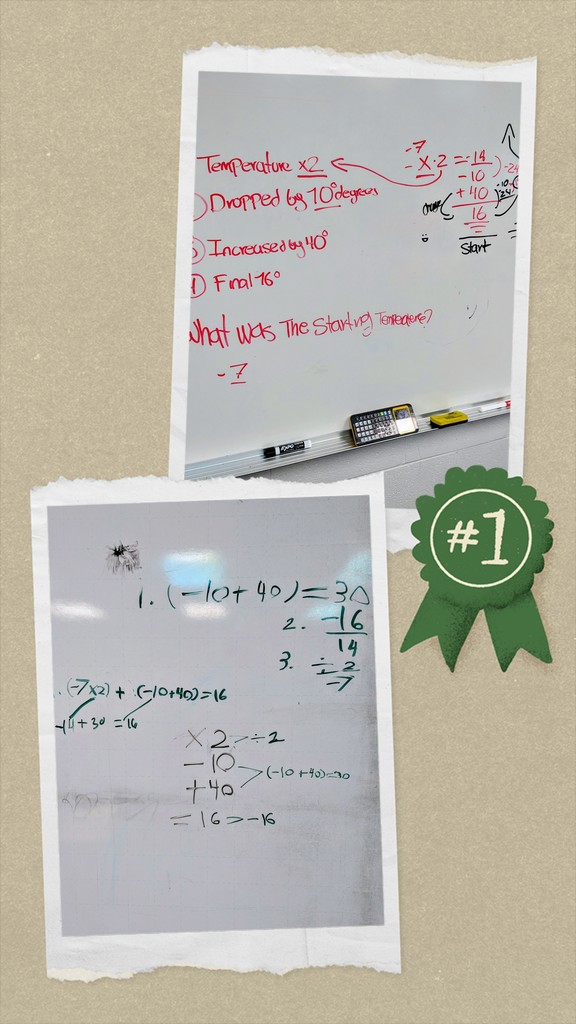 Temperature x2
Dropped by 10° degrees
Increased by 40°
Final 16°
What was The Starting Temperature?
-7
-7
- X · 2 = -14
-10
+40
16
Start
-24
-10
EXPO
#1
1. (-10+40)=30
2. -16
14
3. ÷2
-7
. (-7x2) + (-10+40)=16
-14+30 =16
x2 > ÷2
-10
+40 > (-10+40)=30
= 16 > -16